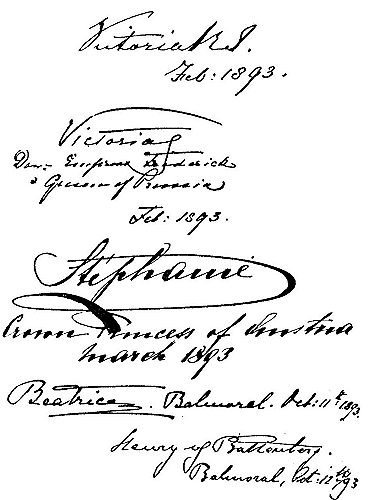 Victoria R I.
Feb: 1893.
Victoria
Dow: Empress Frederick
& Queen of Prussia
Feb: 1893.
Stéphanie
Crown Princess of Austria
March 1893
Beatrice. Balmoral. Oct: 11th 1893.
Henry of Battenberg.
Balmoral, Oct: 12th/93